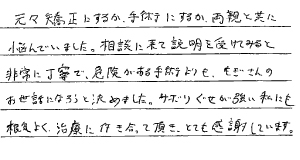 元々矯正にするか、手術にするか、両親と共に
悩んでいました。相談に来て説明を受けてみると
非常に丁寧で、危険がある手術よりも、もぎさんの
お世話になろうと決めました。サボりぐせが強い私にも
根気よく、治療に付き合って頂き、とても感謝しています。